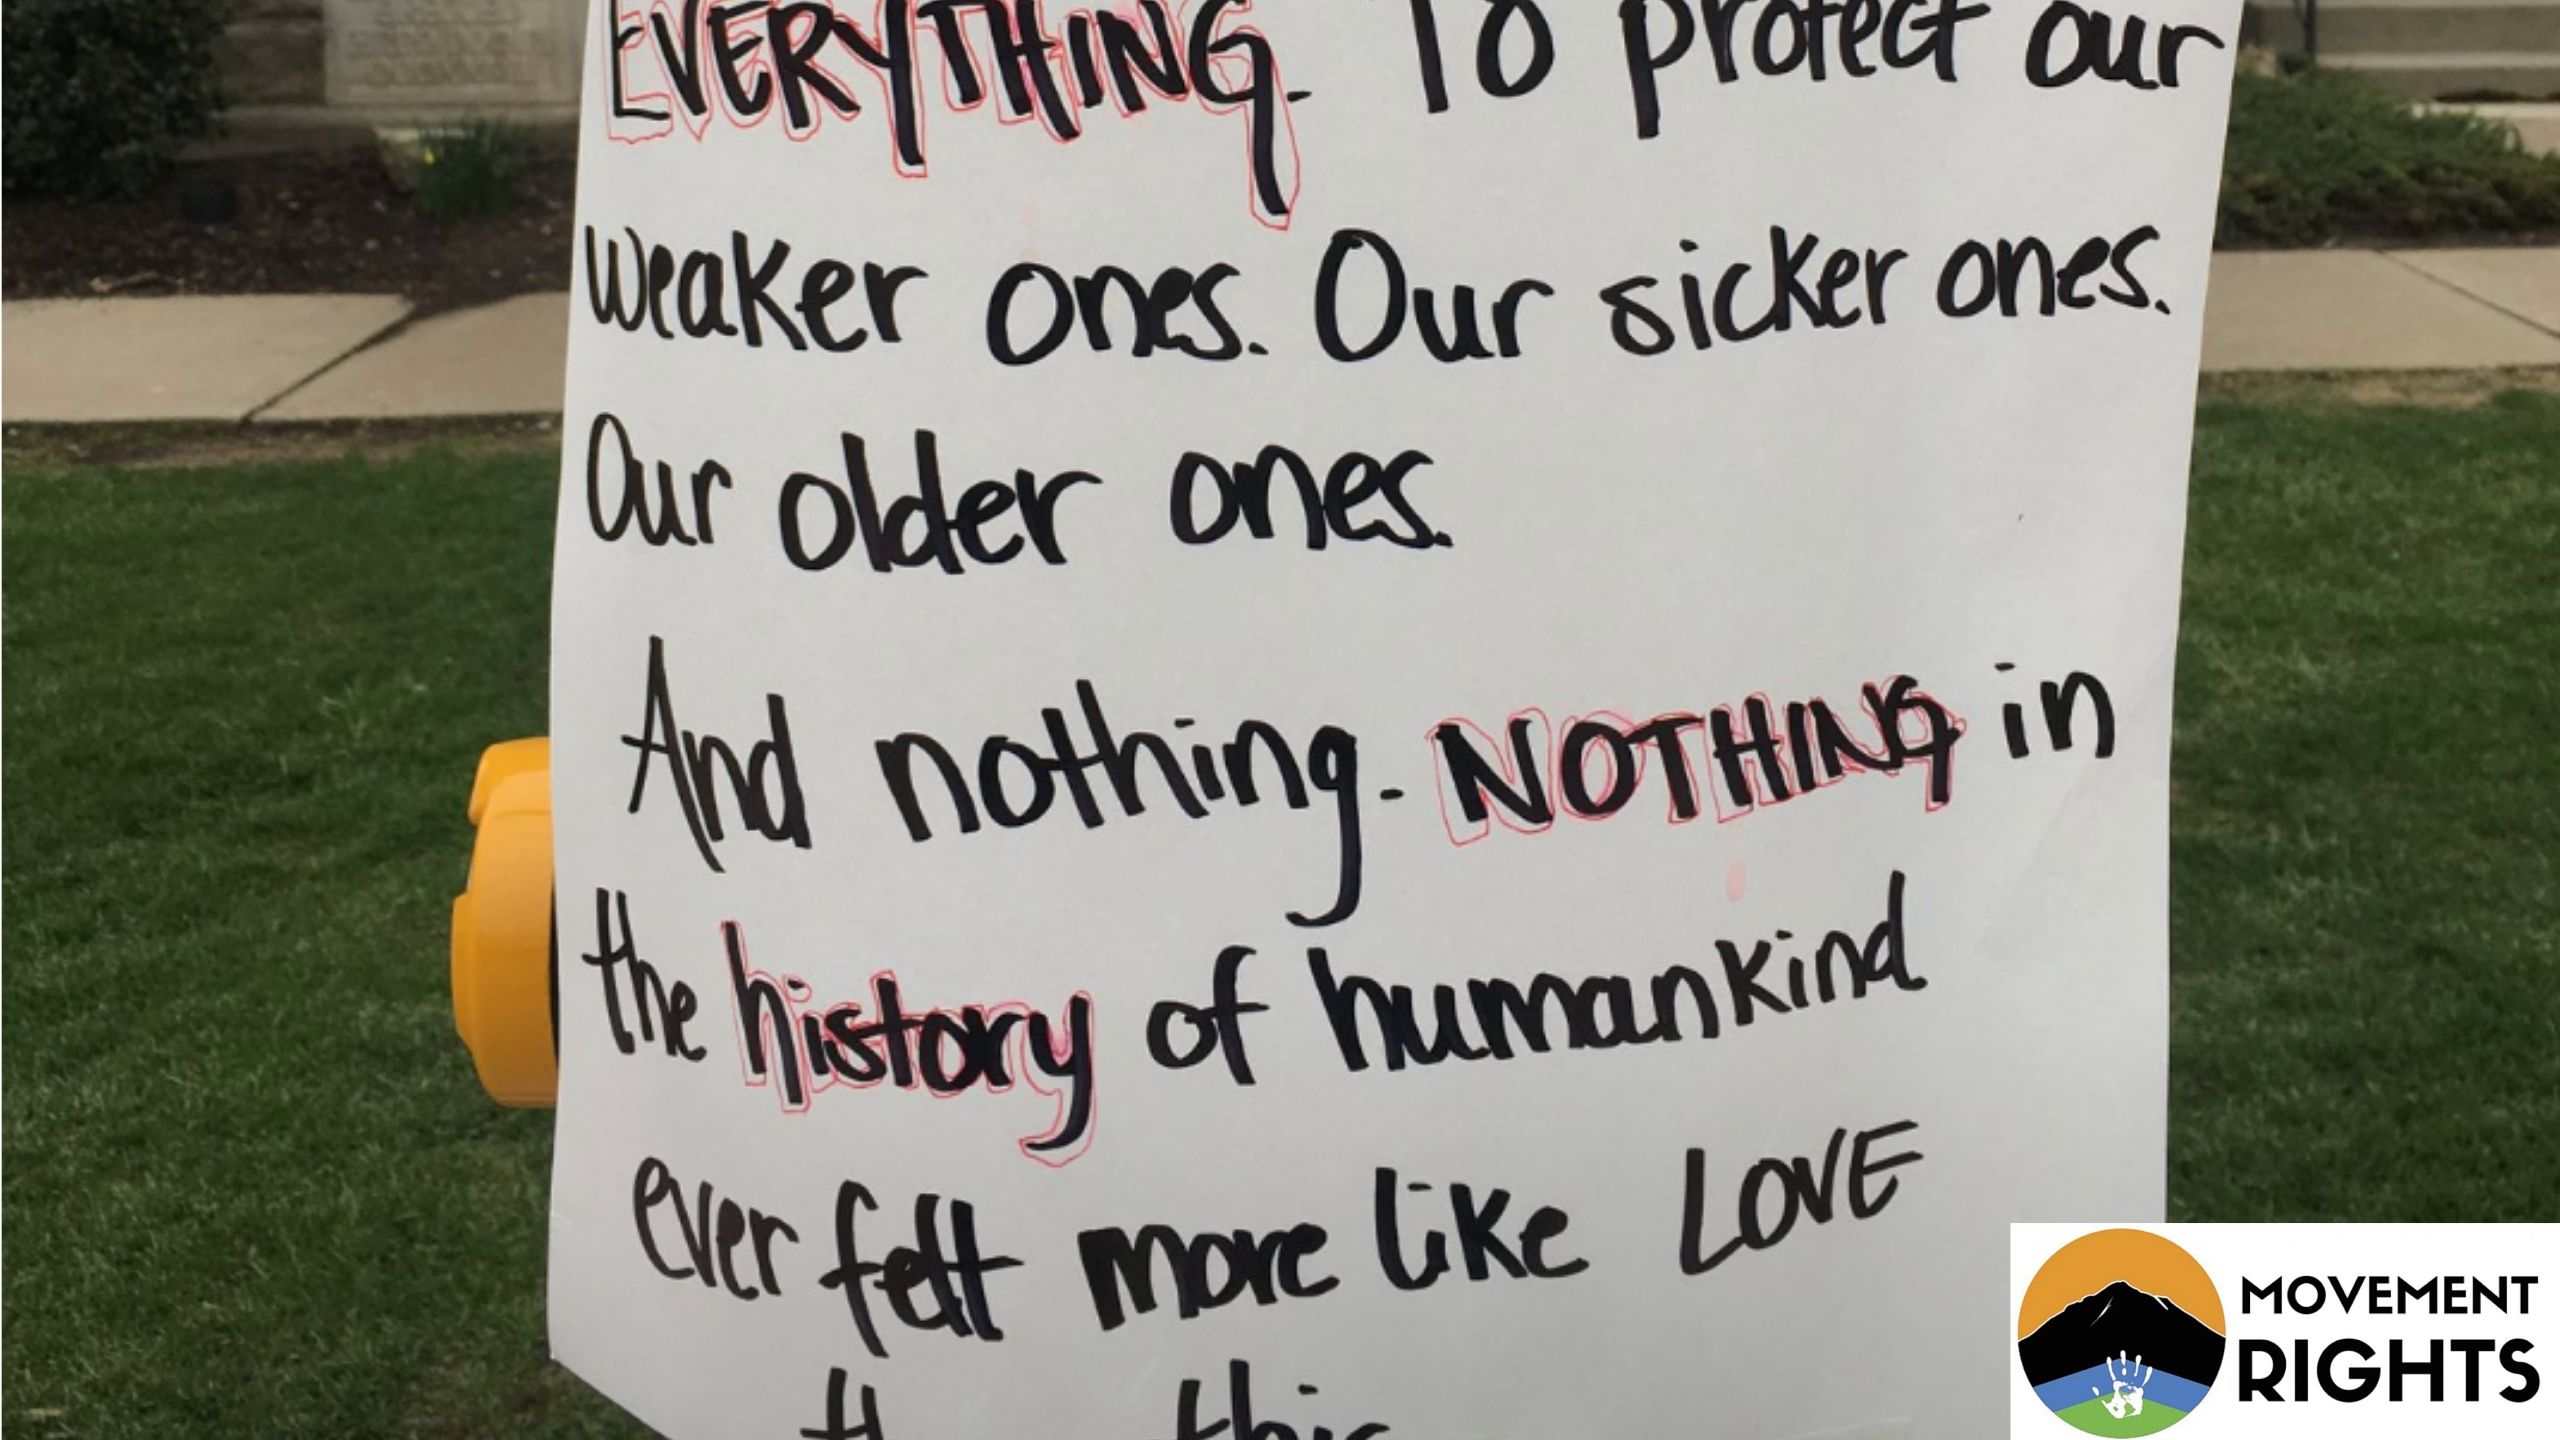 EVERYTHING. To protect our
weaker ones. Our sicker ones.
Our older ones.
And nothing. NOTHING in
the history of humankind
ever felt more like LOVE
this
MOVEMENT
RIGHTS